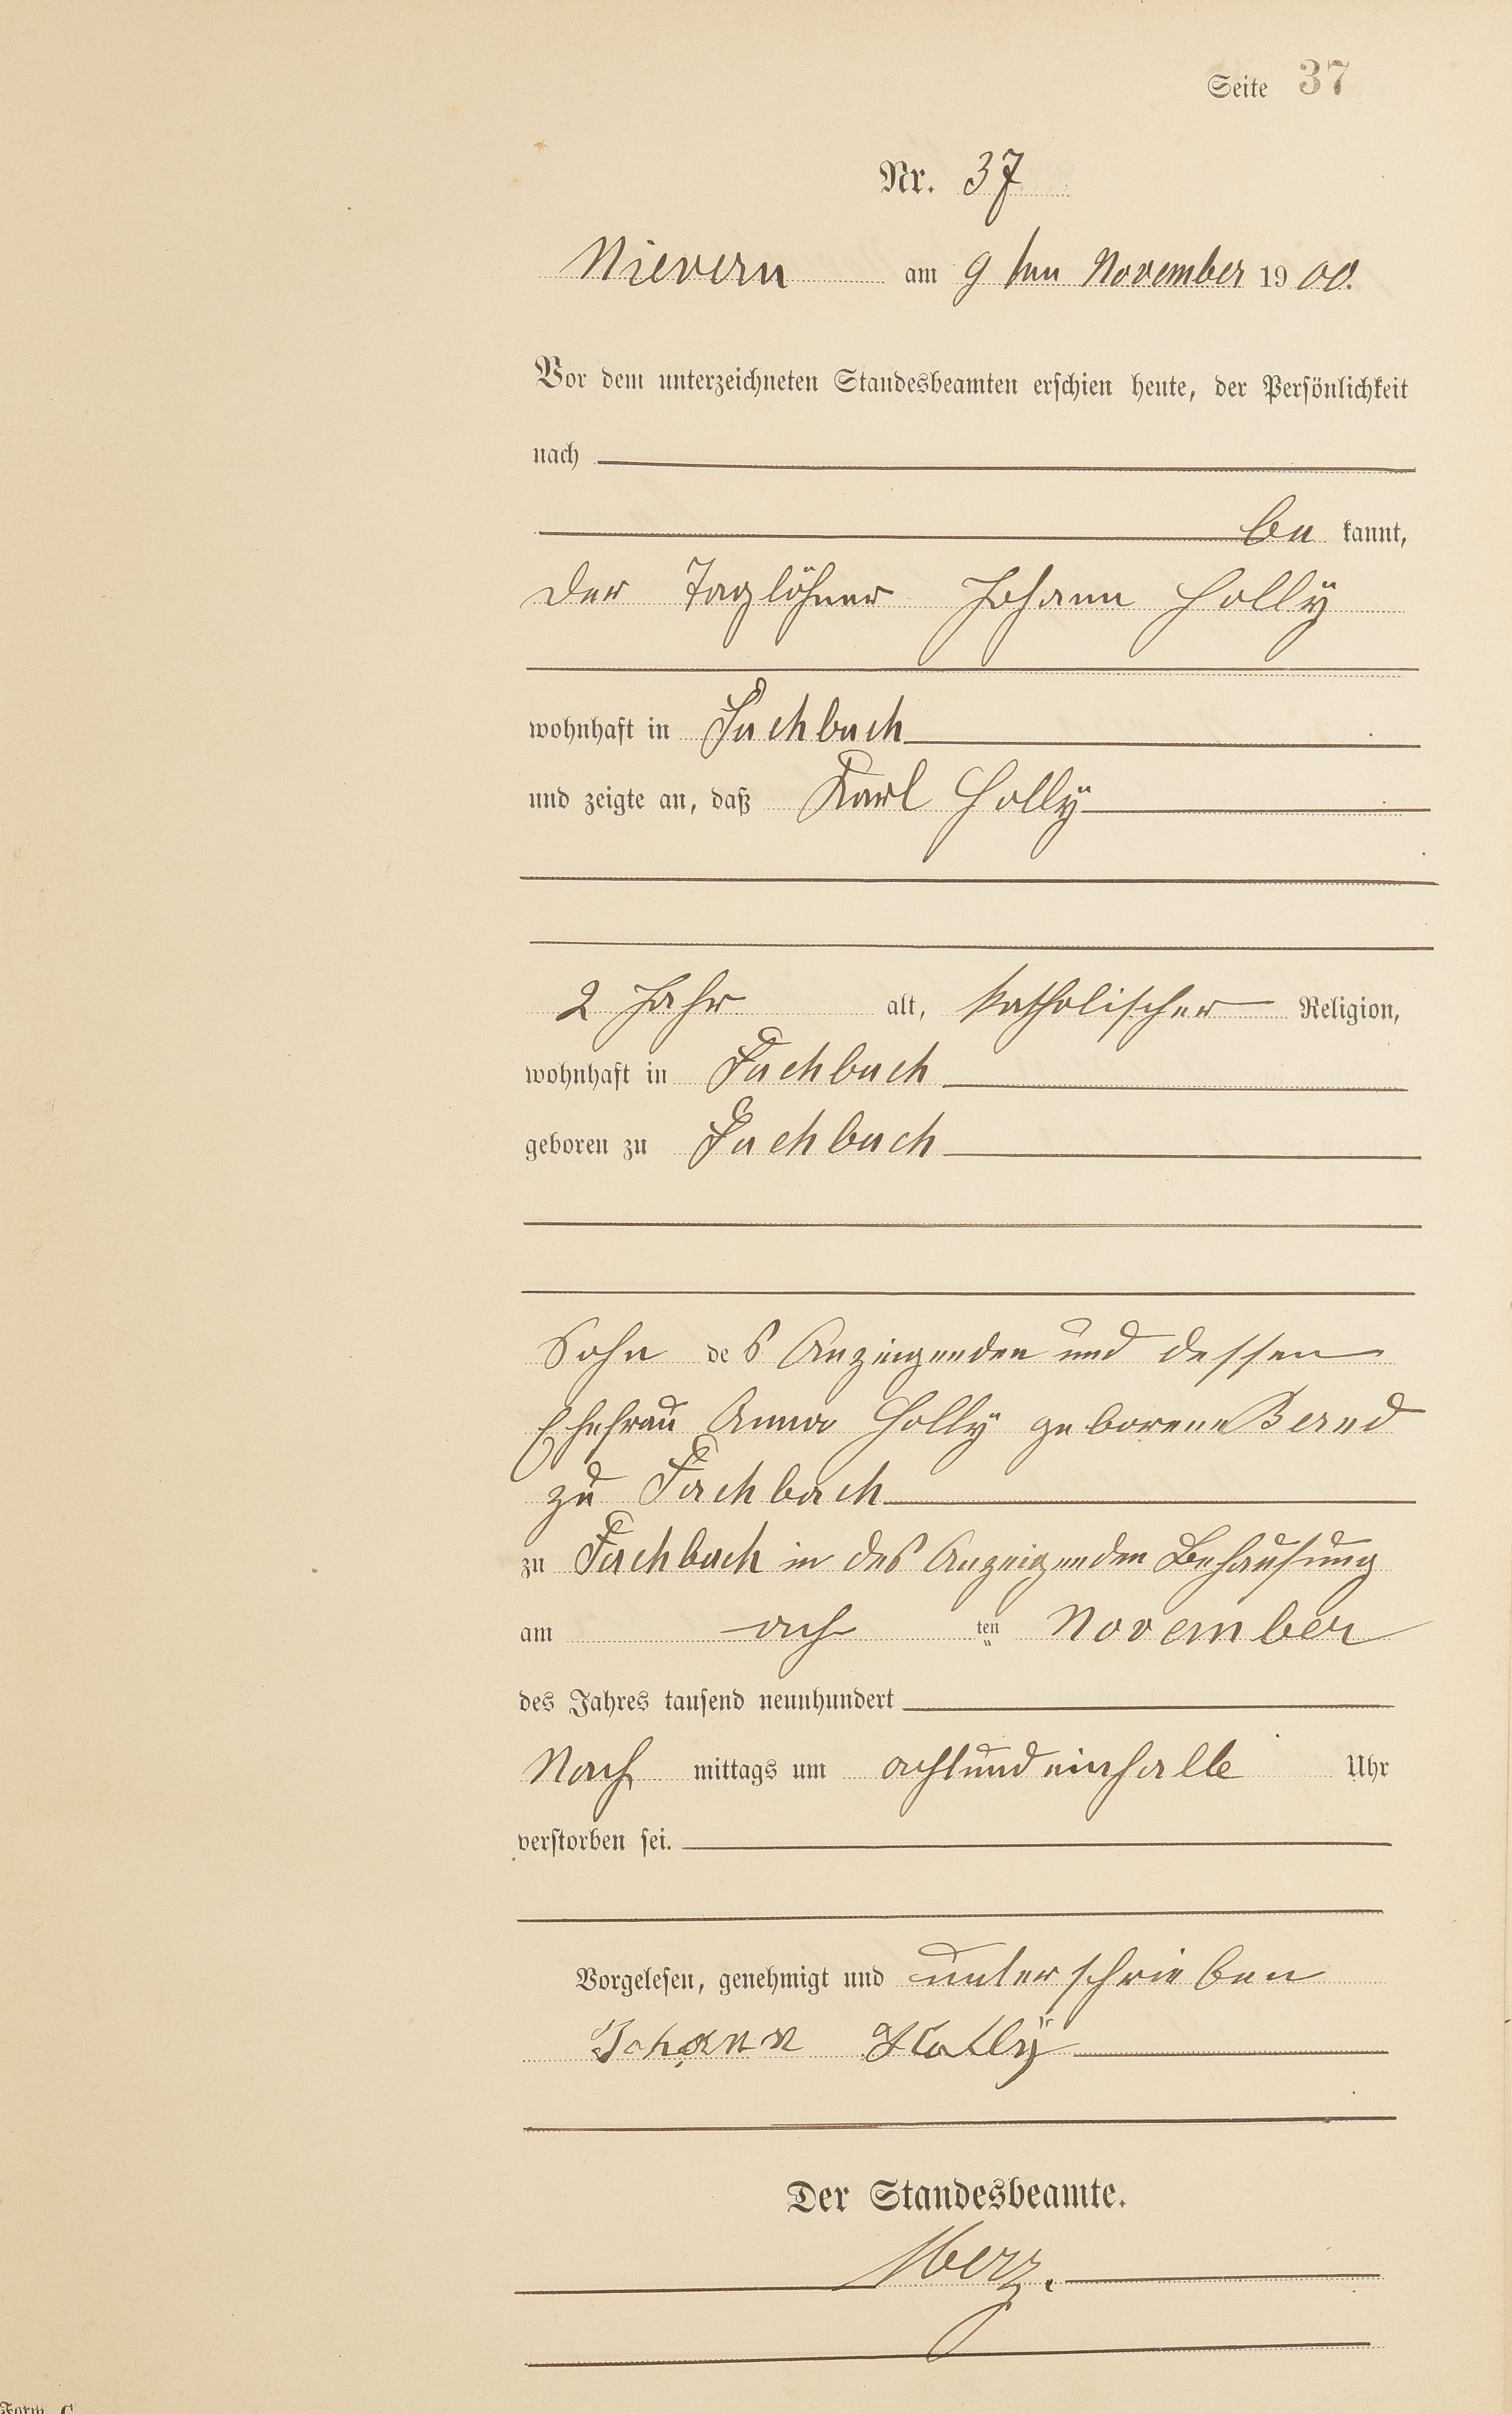 Seite 37
Nr. 37
Nievern am 9 ten November 1900.
Vor dem unterzeichneten Standesbeamten erschien heute, der Persönlichkeit
nach
be kannt,
der Taglöhner Johann Holly
wohnhaft in Fachbach
und zeigte an, daß Karl Holly
2 Jahr alt, katholischer Religion,
wohnhaft in Fachbach
geboren zu Fachbach
Sohn des Anzeigenden und dessen
Ehefrau Anna Holly geborene Bernd
zu Fachbach
zu Fachbach in des Anzeigenden Behausung
am ach ten November
des Jahres tausend neunhundert
Nach mittags um achtundeinhalb Uhr
verstorben sei.
Vorgelesen, genehmigt und unterschrieben
Johann Holly
Der Standesbeamte.
Merz.
Form. C